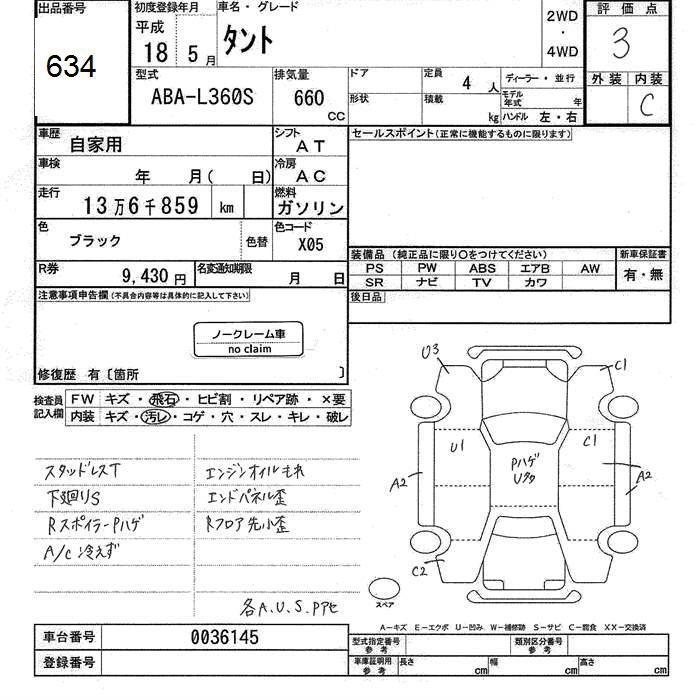 出品番号
634
初度登録年月
平成
18 5 月
車名・グレード
タント
2WD
・
4WD
評価点
3
外装 内装
C
型式
ABA-L360S
排気量
660
CC
ドア
形状
定員
4 人
積載
kg
ディーラー・並行
モデル
年式 年
ハンドル 左・右
車歴
自家用
シフト
AT
車検
年 月( 日)
冷房
AC
走行
13万6千859 km
燃料
ガソリン
色
ブラック
色替
色コード
X05
R券
9,430 円
名変通知期限
月 日
セールスポイント(正常に機能するものに限ります)
装備品 (純正品に限り○をつけてください)
PS PW ABS エアB AW
SR ナビ TV カワ
新車保証書
有・無
後日品
注意事項申告欄(不具合内容等は具体的に記入して下さい)
ノークレーム車
no claim
修復歴 有〔箇所 〕
検査員
記入欄
FW キズ・飛石・ヒビ割・リペア跡・×要
内装 キズ・汚レ・コゲ・穴・スレ・キレ・破レ
スタッドレスT
下廻りS
RスポイラーPハゲ
A/C冷えず
エンジンオイルもれ
エンドパネル歪
Rフロア先小歪
各A.U.S.Pアセ
U3
C1
U1
Pハゲ
C1
A2
A2
C2
スペア
A-キズ E-エクボ U-凹み W-補修跡 S-サビ C-腐食 XX-交換済
車台番号
0036145
登録番号
型式指定番号
参考
類別区分番号
参考
車庫証明用
参考
長さ cm
幅 cm
高さ cm